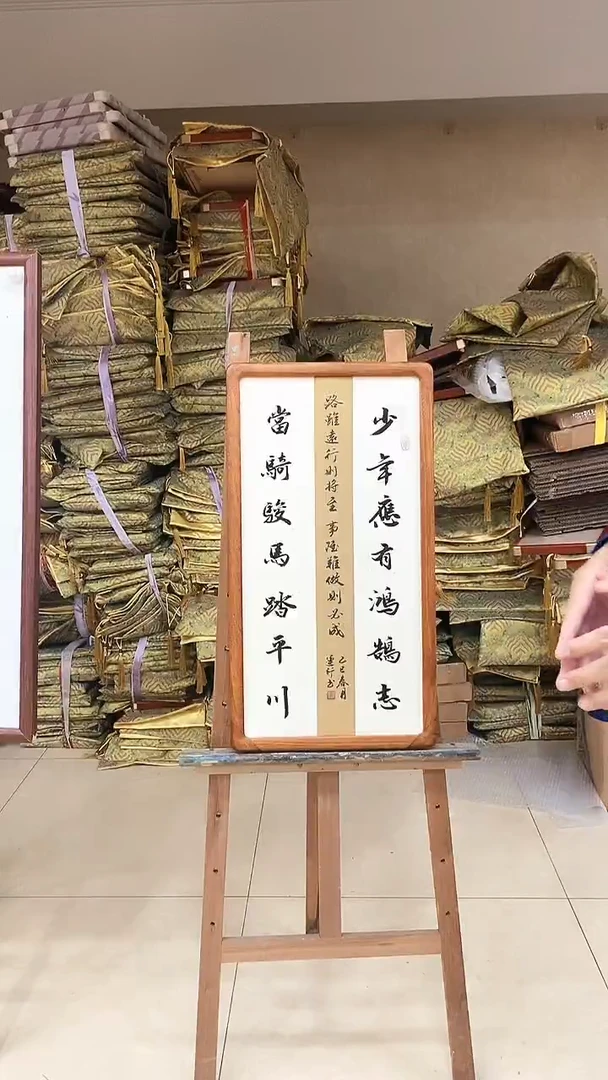 少年應有鴻鵠志
路雖遠行則將至 事雖難做則必成
乙巳春月
當騎駿馬踏平川